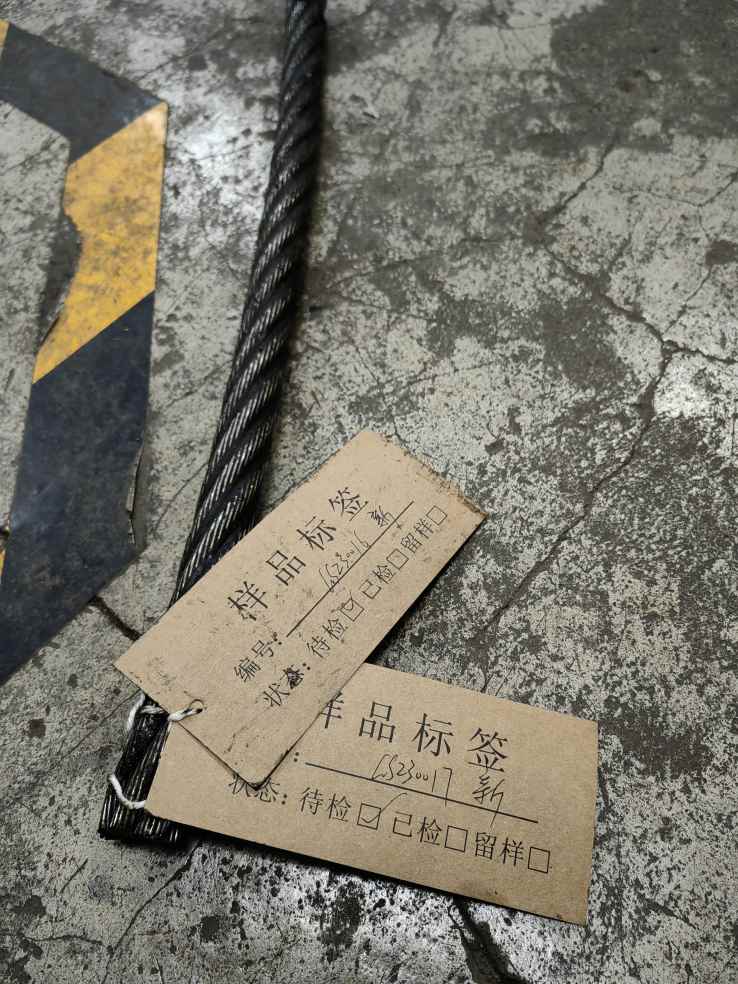 样品标签
编号: GS230016 新
状态: 待检☑已检☐留样☐
样品标签
: GS230017 新
状态: 待检☑已检☐留样☐